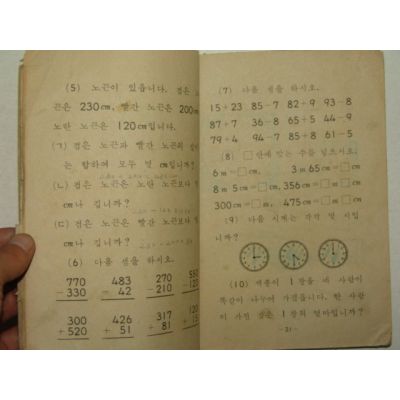 (5) 노끈이 있읍니다. 검은
끈은 230cm, 빨간 노끈은 200cm
노란 끈은 120cm입니다.
(ㄱ) 검은 노끈과 빨간 노끈의
는 합하여 모두 몇 cm입니까?
(ㄴ) 검은 노끈은 노란 노끈보다 몇
cm나 깁니까?
(ㄷ) 검은 노끈은 빨간 노끈보다 몇
cm나 깁니까?
(6) 다음 셈을 하시오.
770 483 270 580
-330 - 42 -210 -12
300 426 317 120
+520 + 51 + 81 + 1
(7) 다음 셈을 하시오.
15+23 85-7 82+9 93-8
87+7 36-8 65+5 44-9
79+4 94-7 85+8 61-5
(8) □안에 맞는 수를 넣으시오.
6m=□cm, 3m 65cm=□cm
8m 5cm=□cm, 356cm=□m□cm
300cm=□m, 475cm=□m□cm
(9) 다음 시계는 각각 몇 시입
니까?
(10) 색종이 1장을 네 사람이
똑같이 나누어 가졌읍니다. 한 사람
이 가진 것은 1장의 얼마입니까?
- 21 -